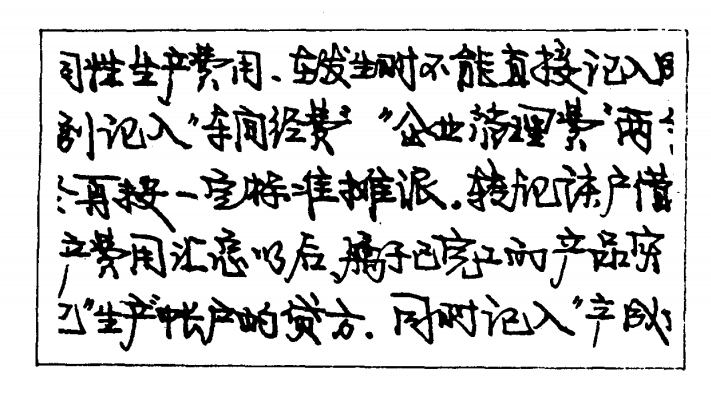 同性生产费用、在发生时不能直接记入
别记入"车间经费""企业管理费"两
再按一定标准摊派.转记该户借
产费用汇总以后,属于已完工的产品
"生产"帐户的贷方.同时记入"产成